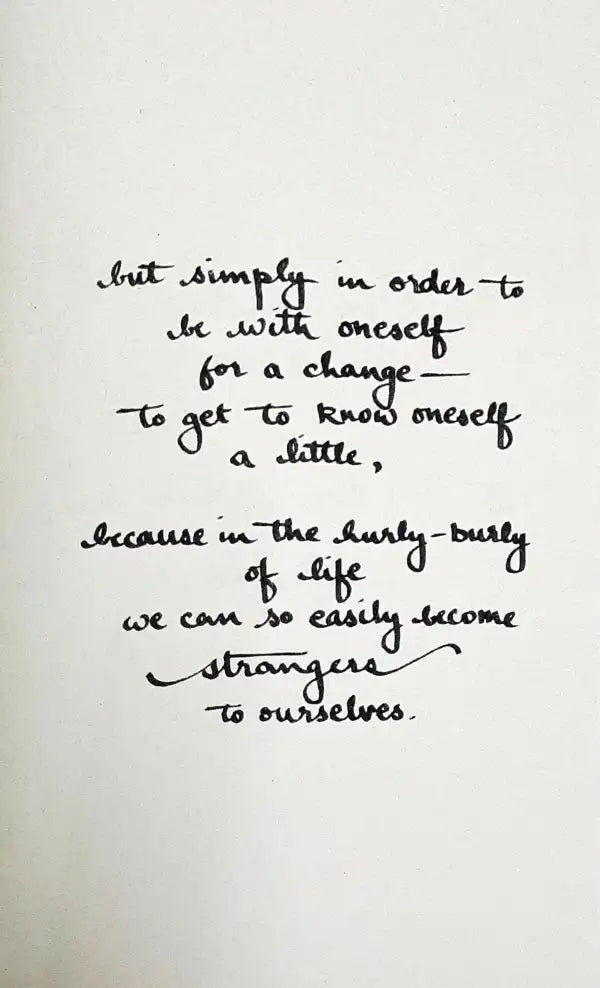 but simply in order to
be with oneself
for a change—
to get to know oneself
a little,
because in the hurly-burly
of life
we can so easily become
strangers
to ourselves.